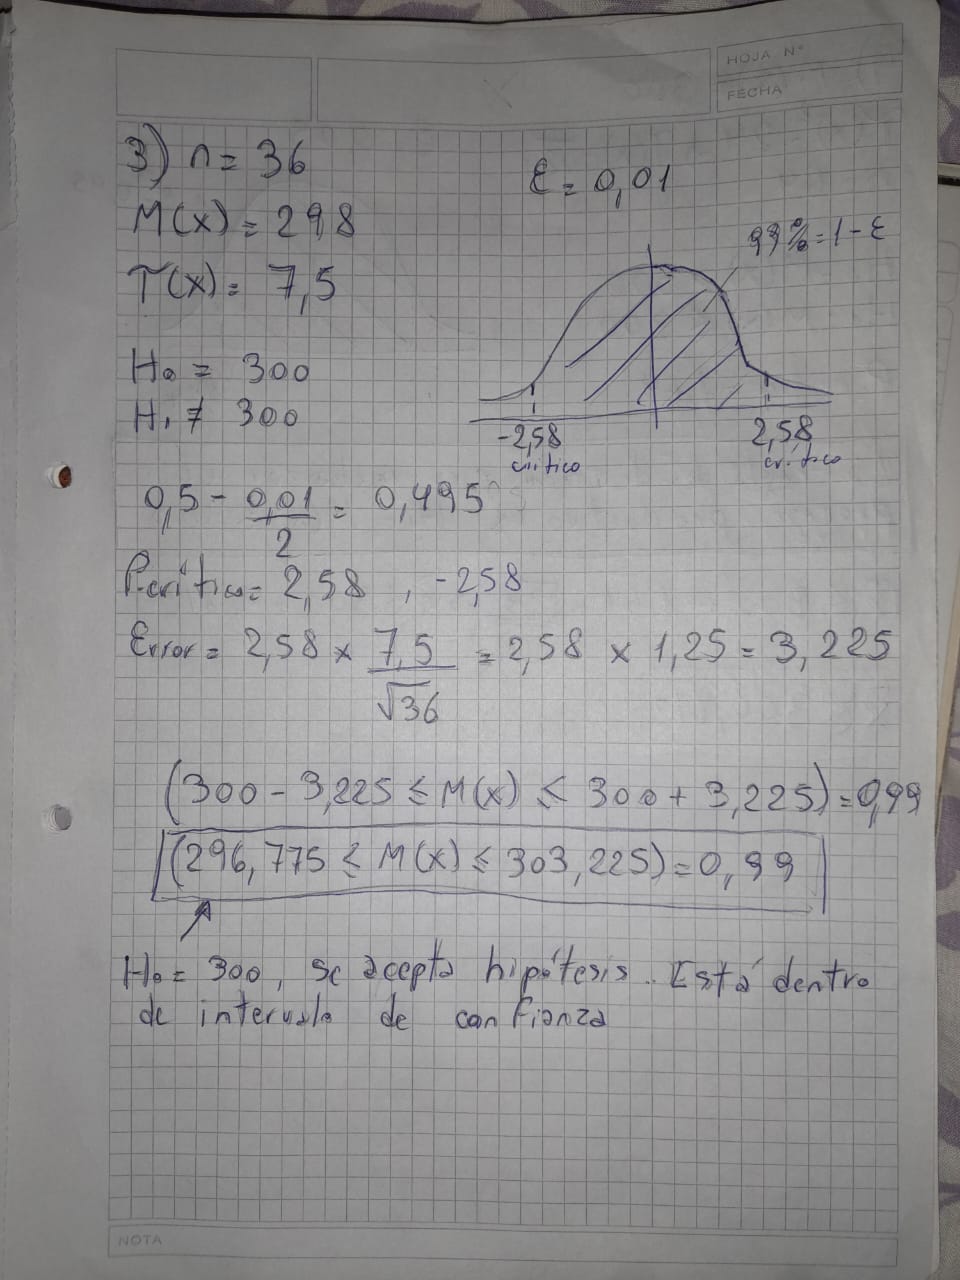 HOJA N°
FECHA
3) n = 36
ε = 0,01
M(x) = 298
99% = 1 - ε
T(x) = 7,5
H₀ = 300
H₁ ≠ 300
-2,58
crítico
2,58
crítico
0,5 - 0,01/2 = 0,495
P.crítico = 2,58 , -2,58
Error = 2,58 x 7,5/√36 = 2,58 x 1,25 = 3,225
(300 - 3,225 ≤ M(x) ≤ 300 + 3,225) = 0,99
(296,775 ≤ M(x) ≤ 303,225) = 0,99
H₀ = 300, se acepta hipótesis.. Está dentro
de intervalo de confianza
NOTA